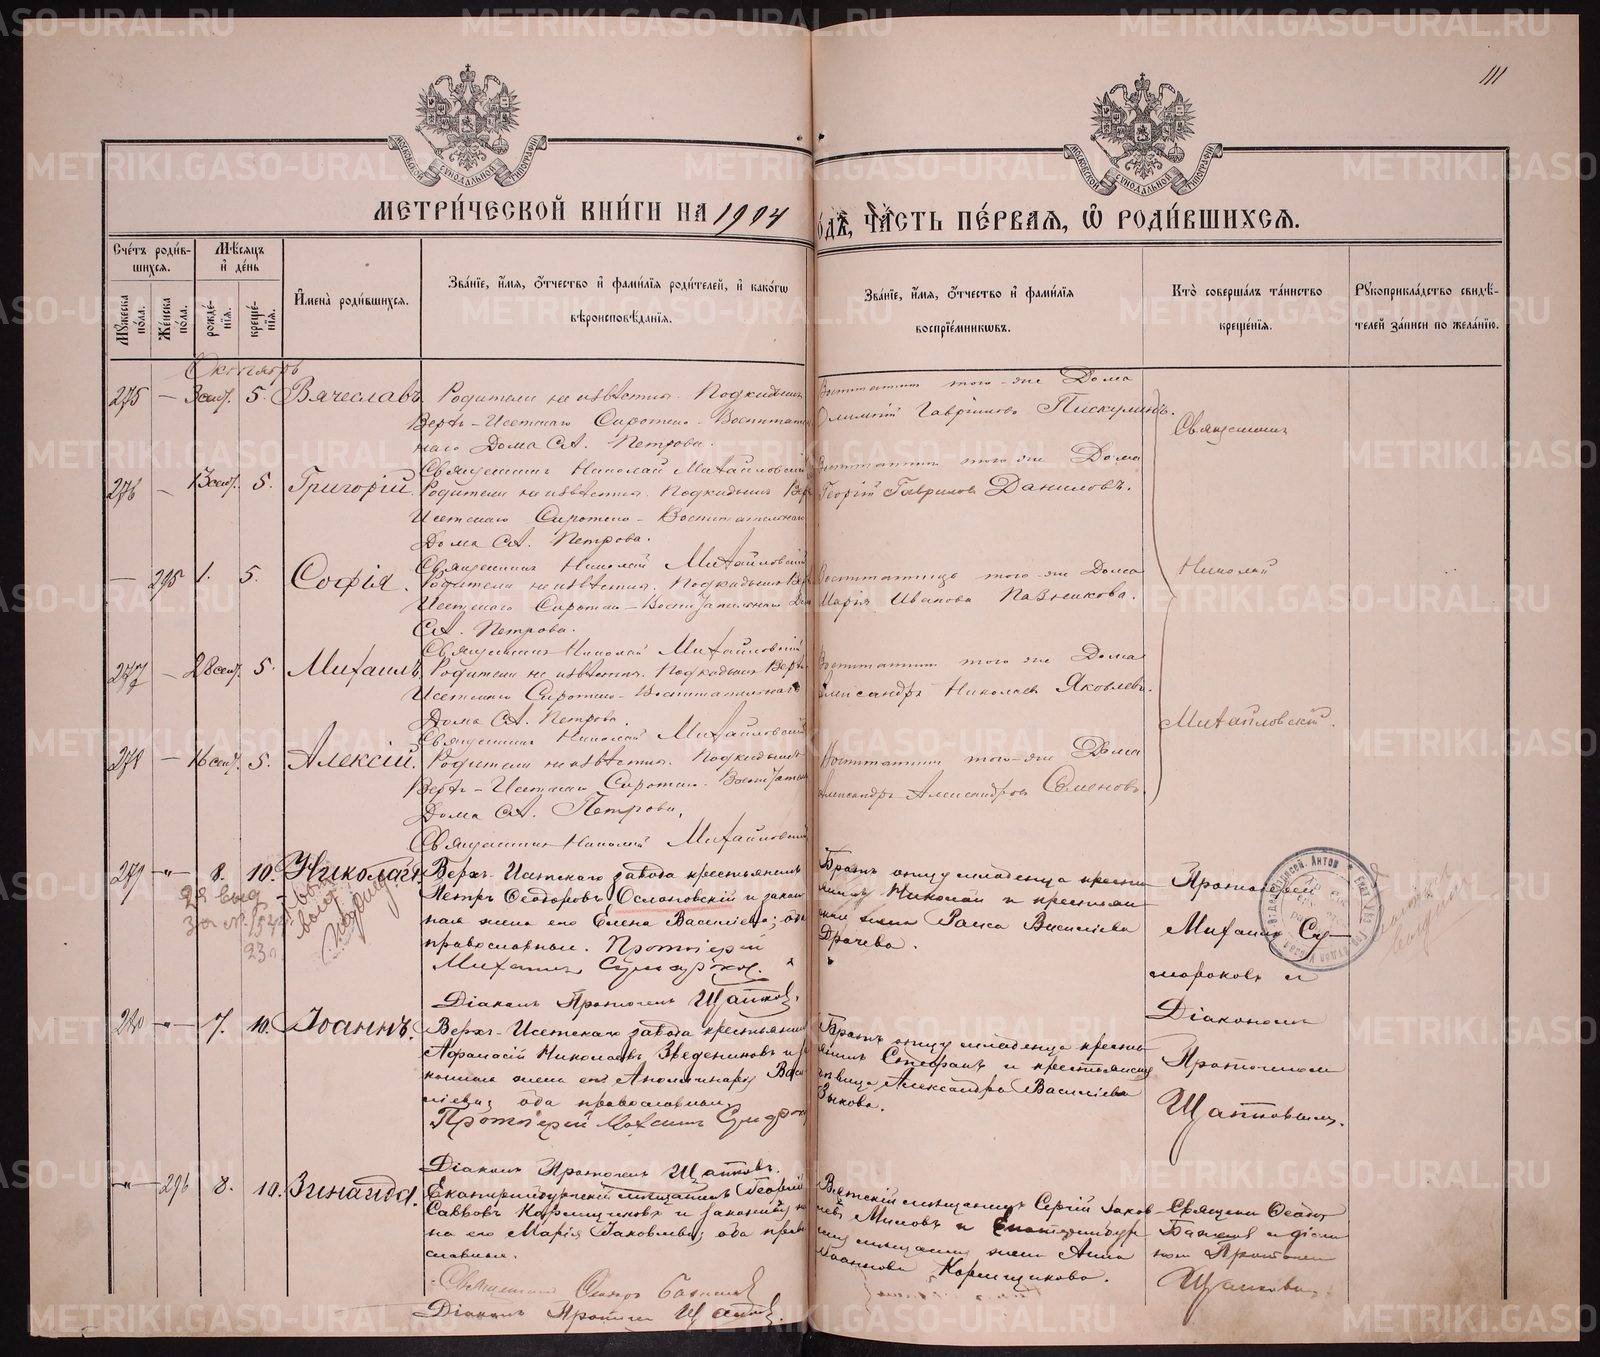 METRIKI.GASO-URAL.RU
111
МОСКОВСКОЙ СѴНОДАЛЬНОЙ ТИПОГРАФІИ
МЕТРИ́ЧЕСКОЙ КНИ́ГИ НА 1904
ГО́ДЪ, ЧА́СТЬ ПЕ́РВАЯ, Ѽ РОДИ́ВШИХСЯ.
Сче́тъ роди́вшихся.
Му́жеска по́ла.
Же́нска по́ла.
Мѣ́сяцъ и҆ де́нь
рожде́нїя.
креще́нїя.
И҆мена̀ роди́вшихся.
Зва́нїе, и҆́мя, о҆́тчество и҆ фами́лїя роди́телей, и҆ како́гѡ
вѣроисповѣ́данїя.
Зва́нїе, и҆́мя, о҆́тчество и҆ фами́лїя
воспрїе́мникѡвъ.
Кто̀ соверша́лъ та́инство
креще́нїя.
Рꙋкоприкла́дство свидѣ́-
телей за́писи по жела́нїю.
Октябрь
275 — 3 сент. 5. Вячеславъ Родители неизвѣстны. Подкидышъ
Верхъ-Исетскаго Сиротско-Воспитатель-
наго Дома СА. Петрова.
Священникъ Николай Михайловскій
Воспитанникъ того-же Дома
Гавріиловъ Пискуминъ.
276 — 13 сент. 5. Григорій. Родители неизвѣстны. Подкидышъ Верхъ
Исетскаго Сиротско-Воспитательнаго
Дома СА. Петрова.
Священникъ Николай Михайловскій
Воспитанникъ того-же Дома
Георгій Гавриловъ Даниловъ.
— 295 1. 5. Софія. Родители неизвѣстны. Подкидышъ Верхъ
Исетскаго Сиротско-Воспитательнаго Дома
СА. Петрова.
Священникъ Николай Михайловскій
Воспитанница того-же Дома
Марія Иванова Пазникова.
277 — 28 сент. 5. Михаилъ. Родители неизвѣстны. Подкидышъ Верхъ
Исетскаго Сиротско-Воспитательнаго
Дома СА. Петрова.
Священникъ Николай Михайловскій
Воспитанникъ того-же Дома
Александръ Николаевъ Яковлевъ.
278 — 16 сент. 5. Алексій. Родители неизвѣстны. Подкидышъ
Верхъ-Исетскаго Сиротско-Воспитатель
Дома СА. Петрова.
Священникъ Николай Михайловскій
Воспитанникъ того-же Дома
Александръ Александровъ Семеновъ.
Священникъ
Николай
Михайловскій.
279 — 8. 10. Николай. Верхъ-Исетскаго завода крестьянинъ
Петръ Ѳеодоровъ Ослоповскій и закон-
ная жена его Елена Васильева; оба
православные. Протоіерей
Михаилъ Сумароковъ.
Діаконъ Протогенъ Щаповъ.
Братъ отцу младенца крестья-
нинъ Николай и крестьян-
ская жена Раиса Васильева
Драчева.
Протоіерей
Михаилъ Су-
мароковъ и
Діакономъ
Протогеномъ
Щаповымъ.
280 — 7. 10. Іоаннъ. Верхъ-Исетскаго завода крестьянинъ
Аѳанасій Николаевъ и за-
конная жена его Аполлинарія Васи-
ліева; оба православные.
Протоіерей Михаилъ Сумароковъ
Діаконъ Протогенъ Щаповъ.
Братъ отцу младенца крестья-
нинъ Стефанъ и крестьянская
дѣвица Александра Василіева
Зыкова.
— 296 8. 10. Зинаида. Екатеринбургскій мѣщанинъ Георгій
Саввовъ Кормщиковъ и законная же-
на его Марія Іаковлева; оба право-
славные.
Діаконъ Протогенъ Щаповъ.
Вятскій мѣщанинъ Сергій Іаков-
левъ Миловъ и Екатеринбур-
гская мѣщанская жена Анна
Іоаннова Кормщикова.